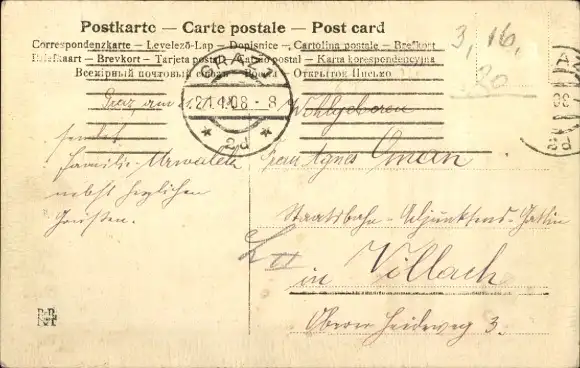 Postkarte — Carte postale — Post card
Correspondenzkarte — Levelező-Lap — Dopisnice — Cartolina postale — Brefkort
Briefkaart — Brevkort — Tarjeta postal — Cartão postal — Karta korespondencyjna
Всемірный почтовый союзъ — Россія — Открытое Письмо
GRAZ 1
21.4.08 - 8
* 2d *
3, 16,
20
Graz, am
Wohlgeboren
sendet
Familie
nebst herzlichen
Grüßen.
Frau Agnes Oman
Staatsbahn-Adjunktens-Gattin
in Villach
Oberer Heideweg 3.